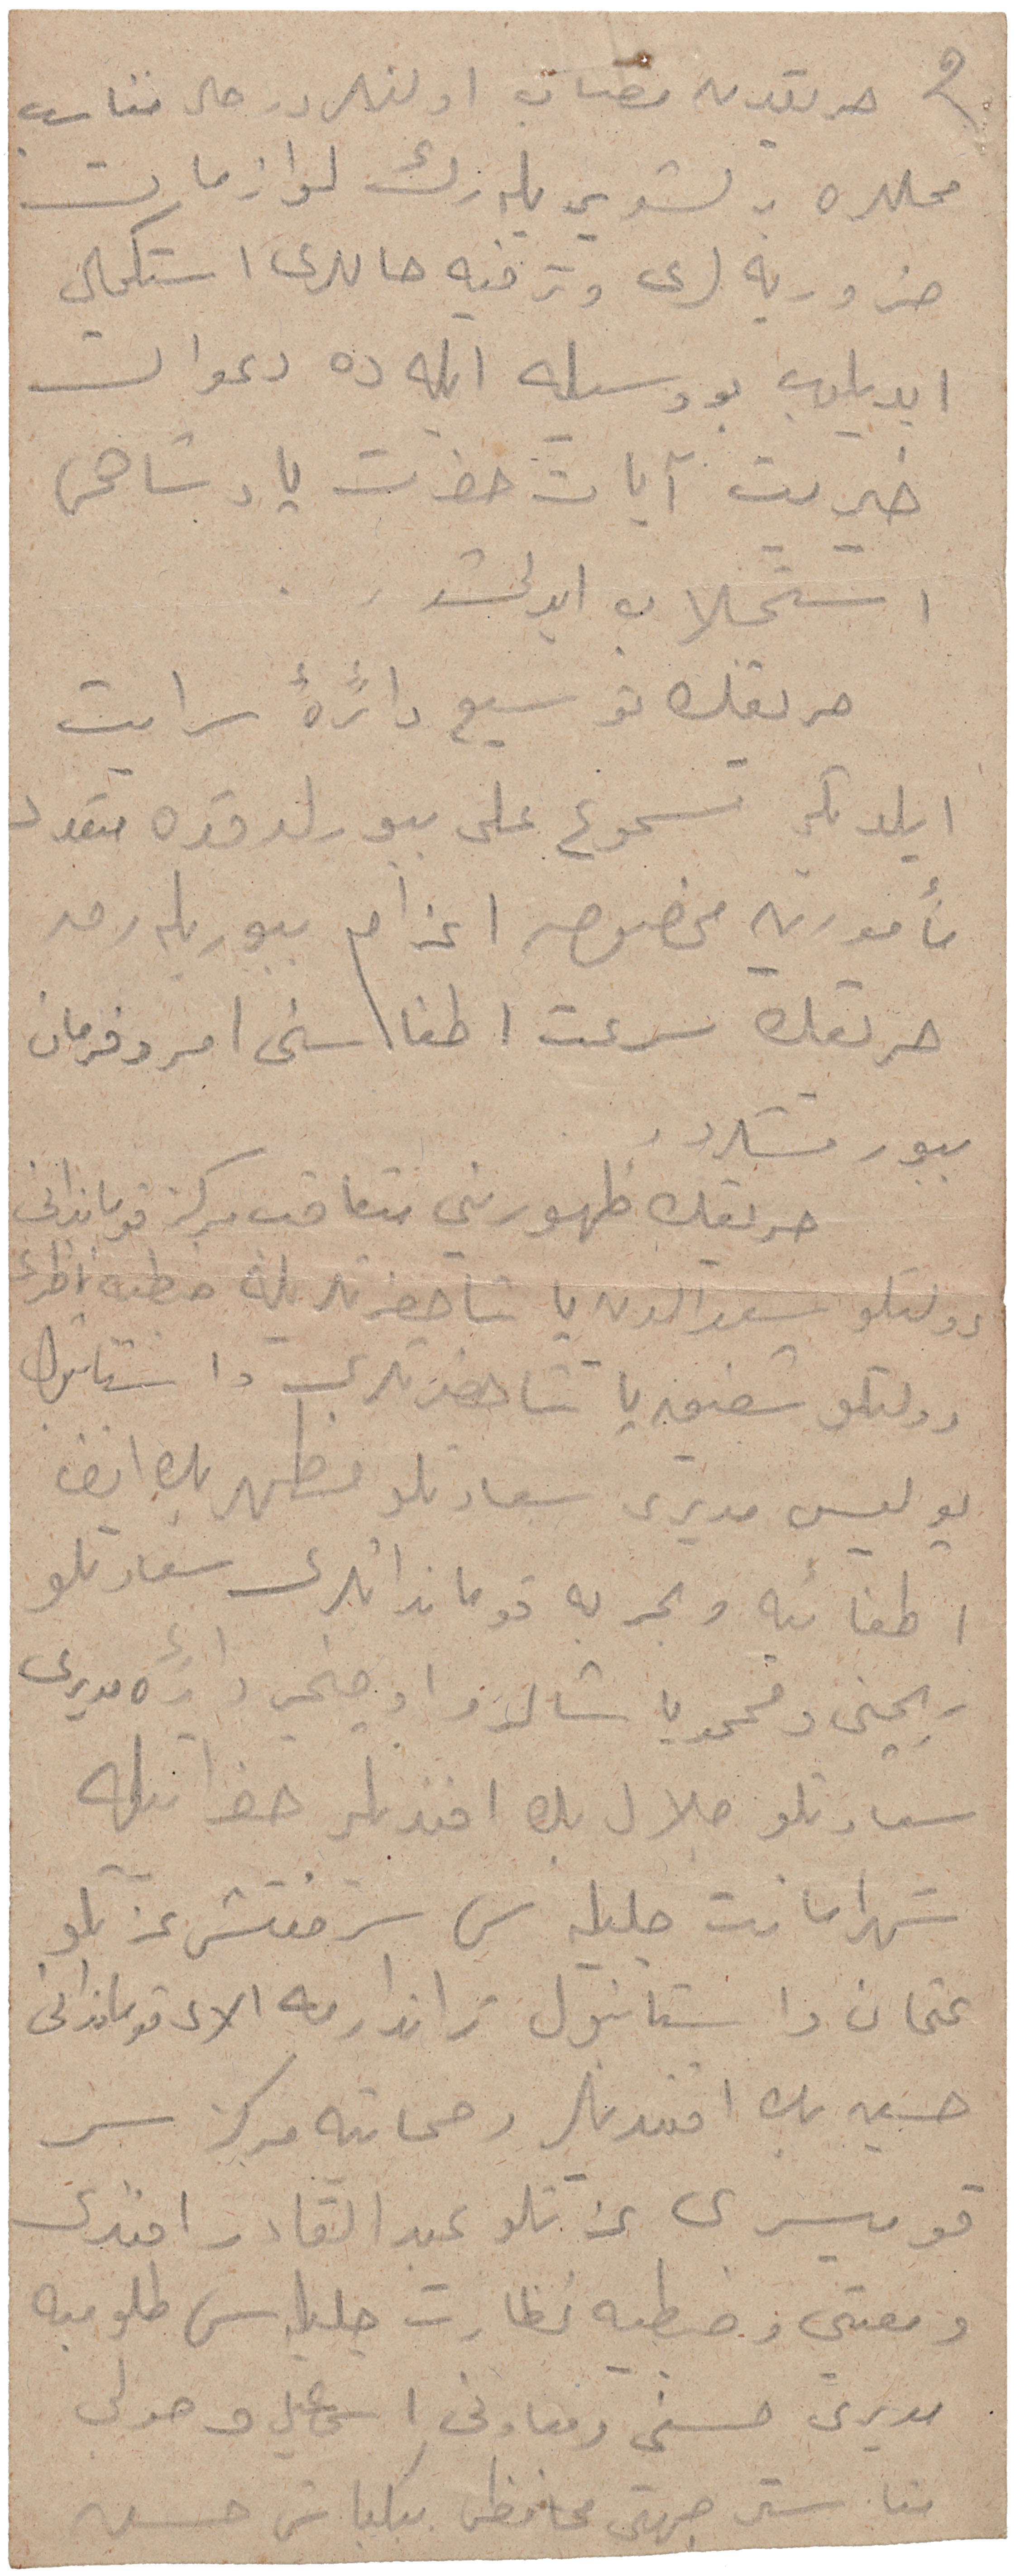 ٢ حریقدن مصاب اولنلر درحال مناسب
محللره یرلشدیریله‌رك لوازمات
ضروریه‌لری وترفیه حاللری استكمال
ایدیلوب بو وسیله ایله ده دعوات
خیریت آیات حضرت پادشاهی
استجلاب ایدلمشدر .
حریقك توسیع دائرۀ سرایت
ایلدیكی مسموع عالی بیورلدقده متعدد
مأمورین مخصوصه اعزام بیوریله‌رق
حریقك سرعت اطفاسنی امر وفرمان
بیورمشلردر
حریقك ظهورینی متعاقب مركز قوماندانی
دولتلو سعدالدین پاشا حضرتلریله ضبطیه ناظری
دولتلو شفیق پاشا حضرتلری واستانبول
پولیس مدیری سعادتلو مظهر بك افندی
اطفائیه وبحریه قوماندانلری سعادتلو
ومحمد پاشالر واوچنجی دائره مدیری
سعادتلو جلال بك افندیلر حضراتیله
شهرامانت جلیله‌سی سرمفتشی عزتلو
عثمان واستانبول ژاندارمه الای قوماندانی
حسین بك افندیلر وضبطیه مركز سر
قومیسری عزتلو عبدالقادر افندی
ومعیتی وضبطیه نظارت جلیله‌سی طلومبه
مدیری حسنی ومعاونی اسماعیل وحولی
مناستر جهتی محافظی بیكباشی حسین